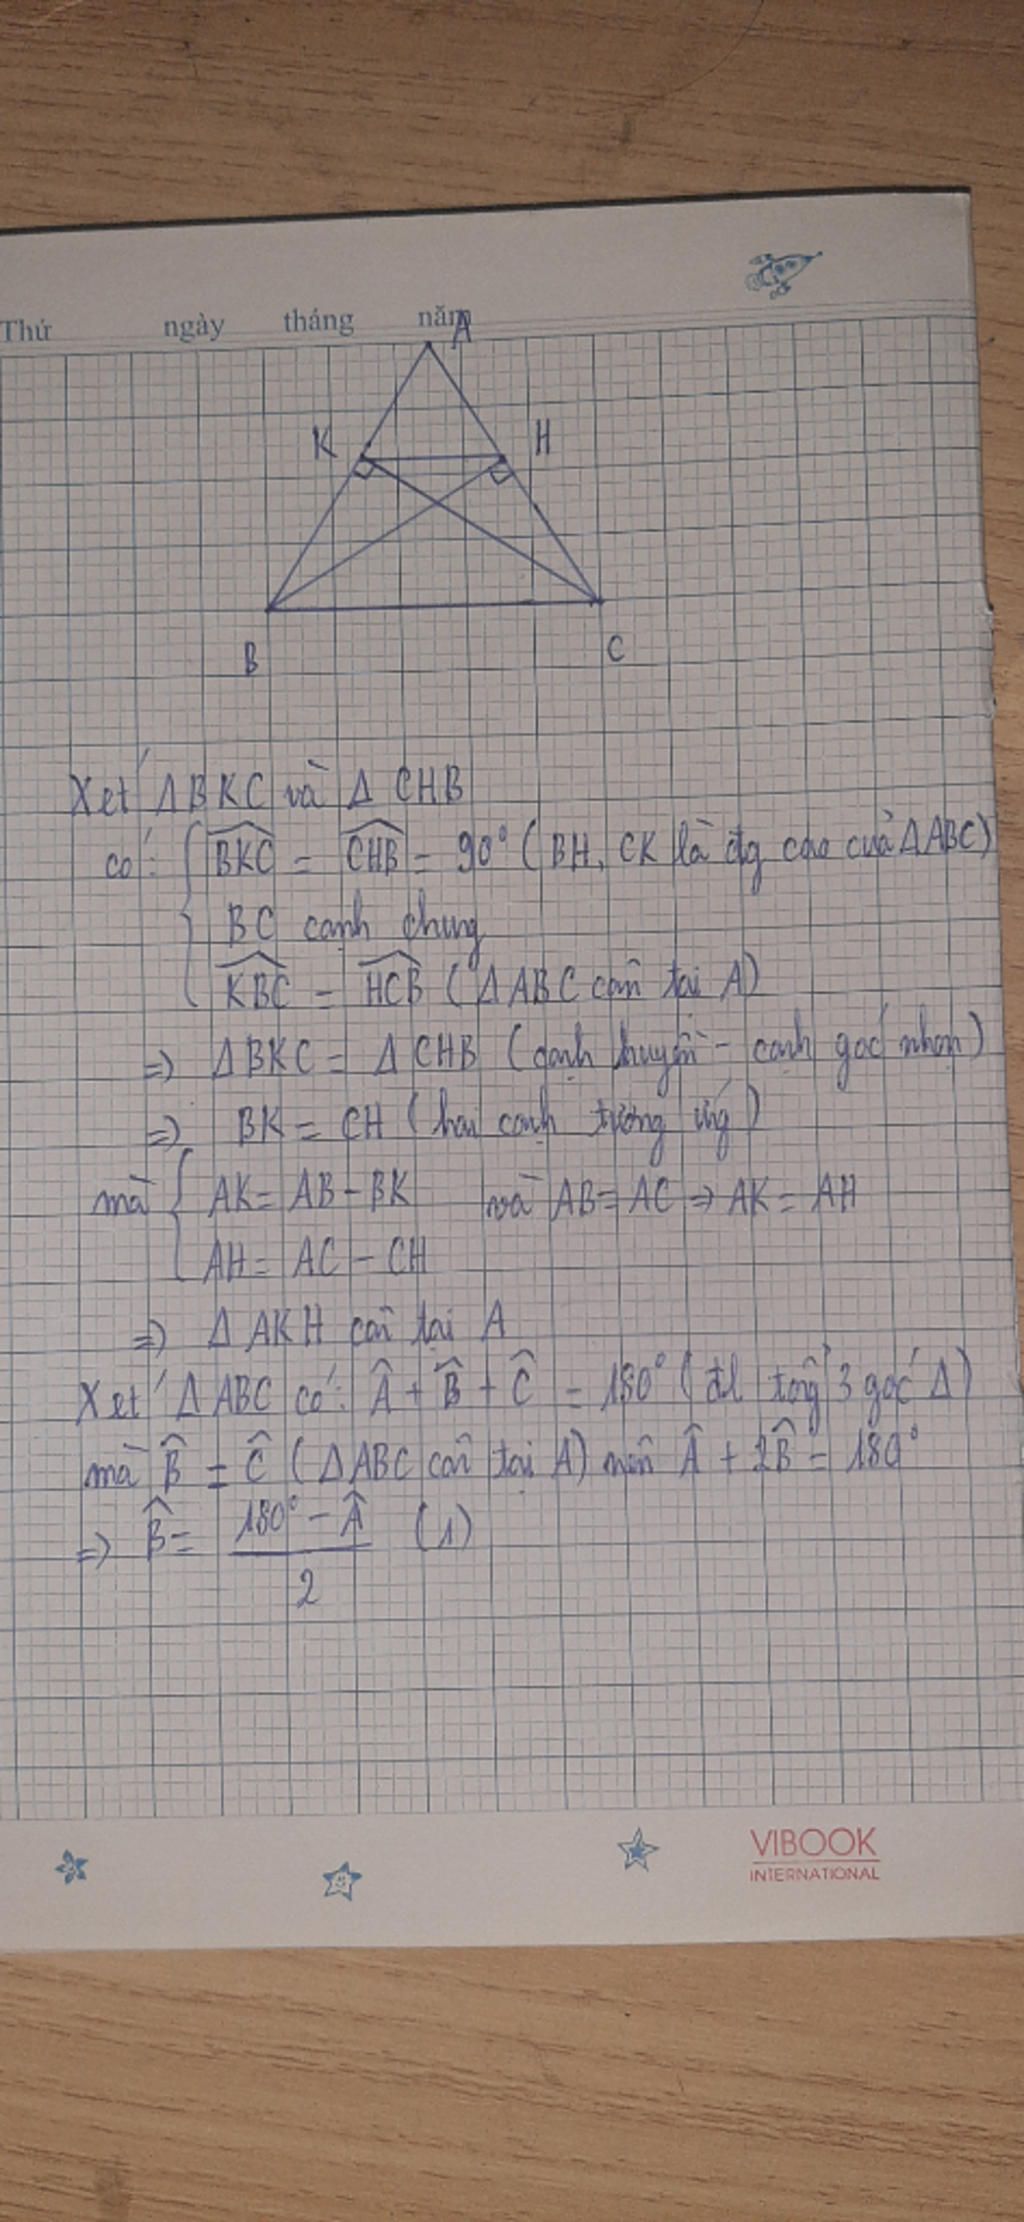 Thứ ngày tháng năm
A
K H
B C
Xét ΔBKC và Δ CHB
có: { \widehat{BKC} = \widehat{CHB} = 90° ( BH, CK là đg cao của ΔABC)
BC cạnh chung
\widehat{KBC} = \widehat{HCB} ( ΔABC cân tại A)
=> ΔBKC = ΔCHB (cạnh huyền - cạnh góc nhọn)
=> BK = CH ( hai cạnh tương ứng )
mà { AK = AB - BK và AB = AC => AK = AH
AH = AC - CH
=> Δ AKH cân tại A
Xét ΔABC có: Â + B̂ + Ĉ = 180° ( đl tổng 3 góc Δ)
mà B̂ = Ĉ ( ΔABC cân tại A) nên Â + 2B̂ = 180°
=> B̂ = \frac{180° - Â}{2} (1)
VIBOOK
INTERNATIONAL